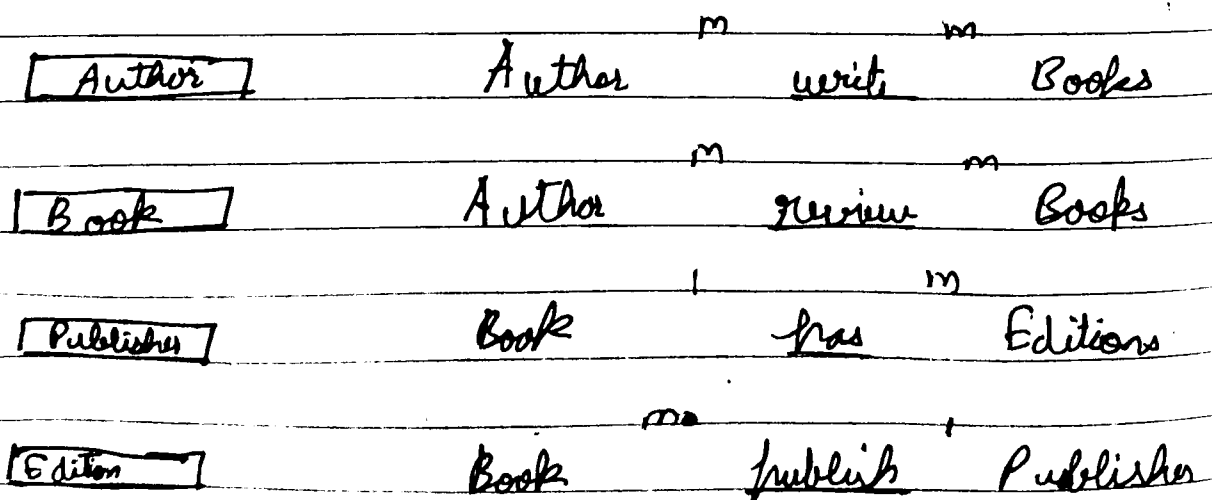 m m
Author Author write Books
m m
Book Author review Books
1 m
Publisher Book has Editions
m 1
Edition Book publish Publisher